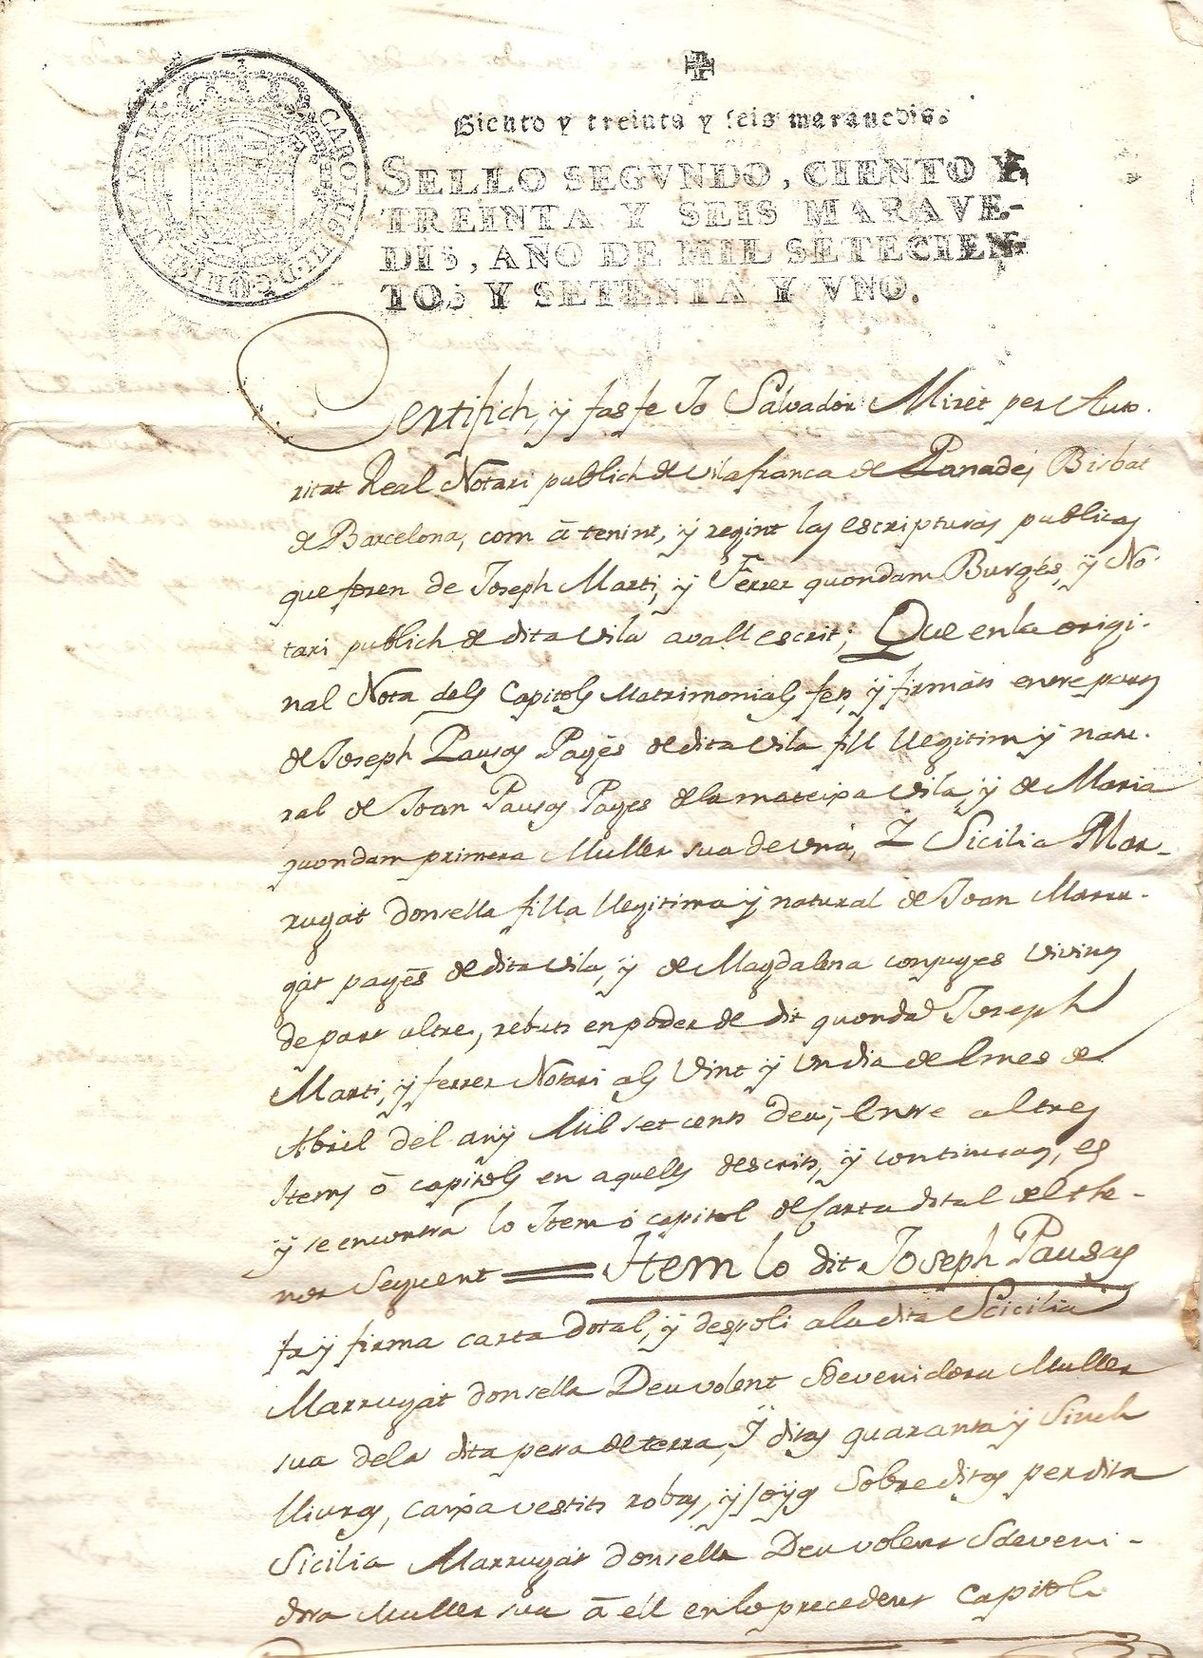 Siento y treinta y seis marauedis.
SELLO SEGVNDO, CIENTO Y
TREINTA Y SEIS MARAVE-
DIS, AÑO DE MIL SETECIEN-
TOS Y SETENTA Y VNO.
CAROLUS III D G
Certifich, y fas fe Jo Salvador Miret per Auto-
ritat Real Notari publich de Vilafranca de Panades Bisbat
de Barcelona, com â tenint, y regint las escripturas publicas
que foren de Joseph Marti, y Ferrer quondam Burgés, y No-
tari publich de dita Vila avall escrit; Que en la origi-
nal Nota dels Capitols Matrimonials fets, y firmats entre parts
de Joseph Pausas Pagès de dita Vila fill llegitim y natu-
ral de Joan Pausas Pages de la mateixa Vila, y de Maria
quondam primera Muller sua de una, Y Sicilia Mar-
rugat donsella filla llegitima y natural de Joan Marru-
gat pagès de dita Vila, y de Magdalena conjuges vivints
de part altre, rebuts en poder de dit quondam Joseph
Marti, y ferrer Notari als Vint y un dia del mes de
Abril del any Mil set cents deu; Entre altres
Items ô capitols en aquells descrits, y continuats, es
y se encontra lo Item ô capitol de Carta dotal del the-
nor Seguent = Item lo dit Joseph Pausas
fa y firma carta dotal, y despoli a la dita Scicilia
Marrugat donsella Deu volent Sdevenidora Muller
sua de la dita pesa de terra, Y ditas quaranta y Sinch
lliuras, caixa vestits robas, y joyas Sobreditas per dita
Sicilia Marrugat donsella Deu volent Sdeveni-
dora Muller sua â ell en lo precedent Capitol